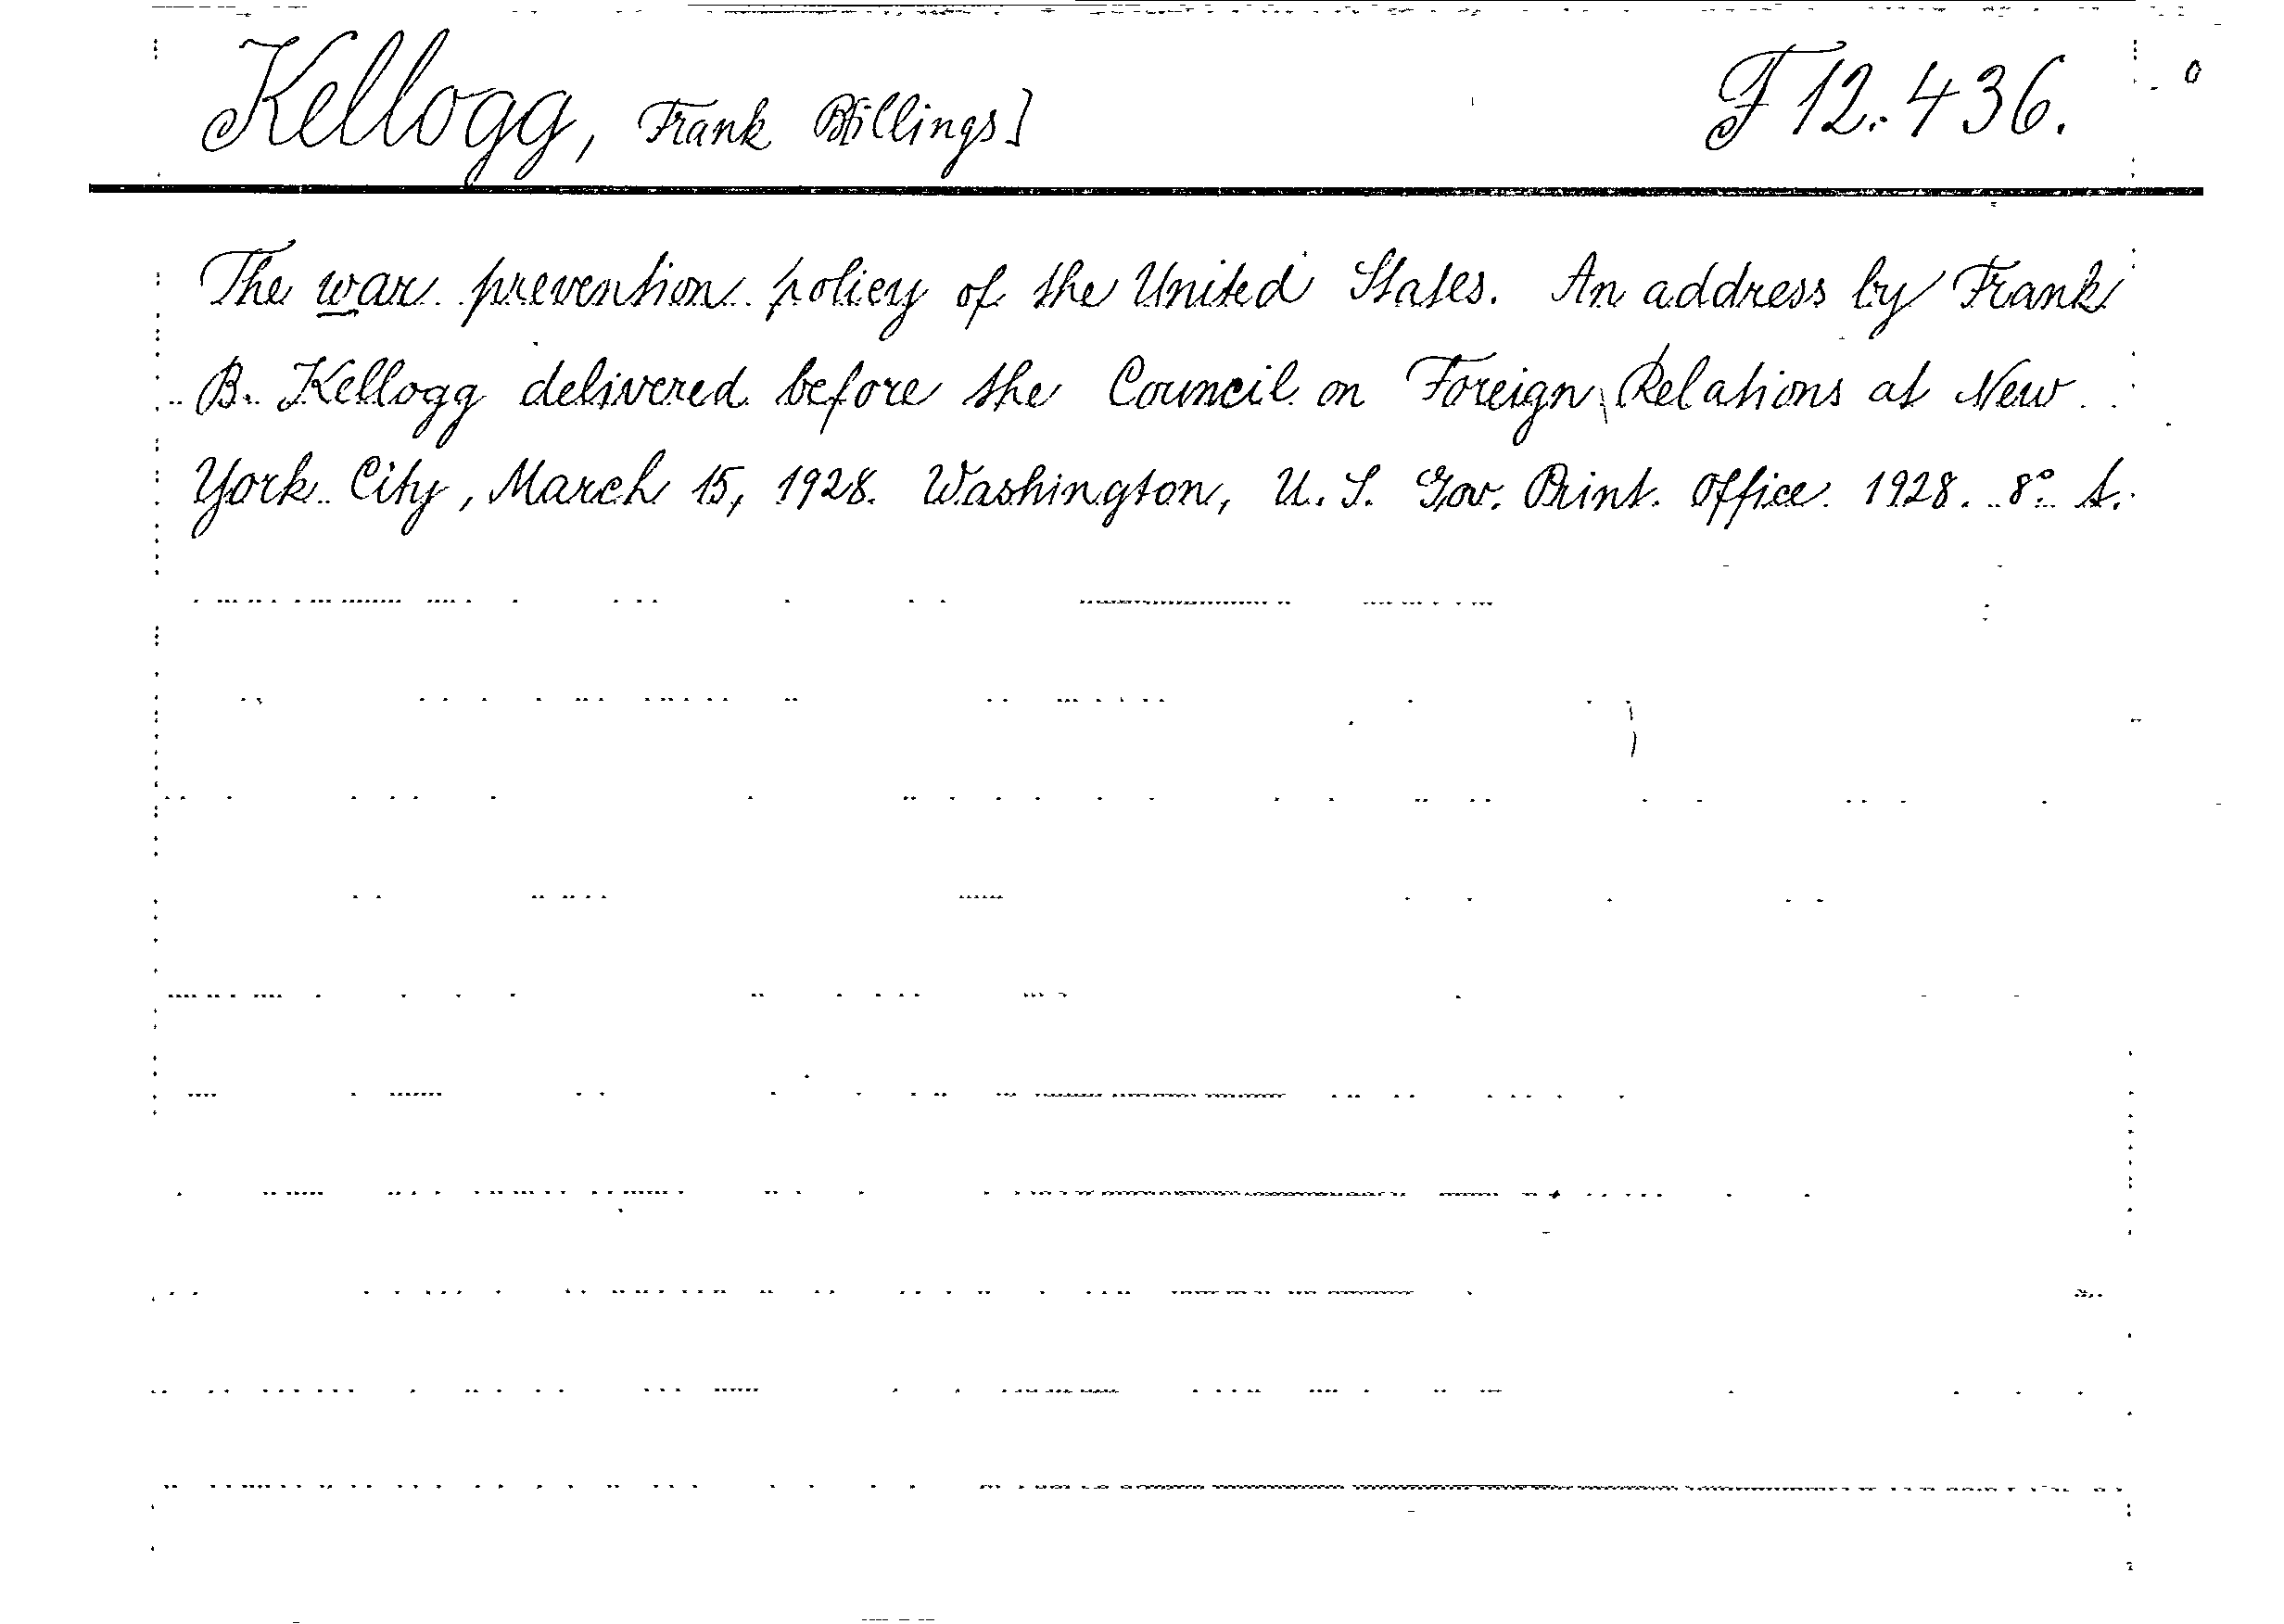 Kellogg, Frank B[illings] F 12.436.
The war prevention policy of the United States. An address by Frank
B. Kellogg delivered before the Council on Foreign Relations at New
York City, March 15, 1928. Washington, U. S. Gov. Print. Office. 1928. 8° A.